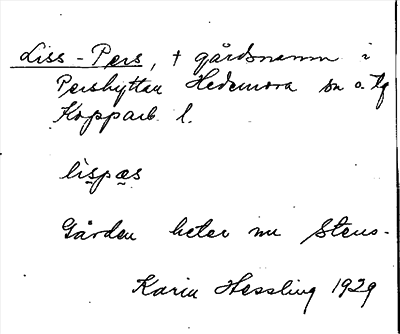 Liss-Pers, † gårdsnamn i
Pershyttan Hedemora sn o. tg
Kopparb. l.
lispæs
Gården heter nu Stens-
Karin Hessling 1929